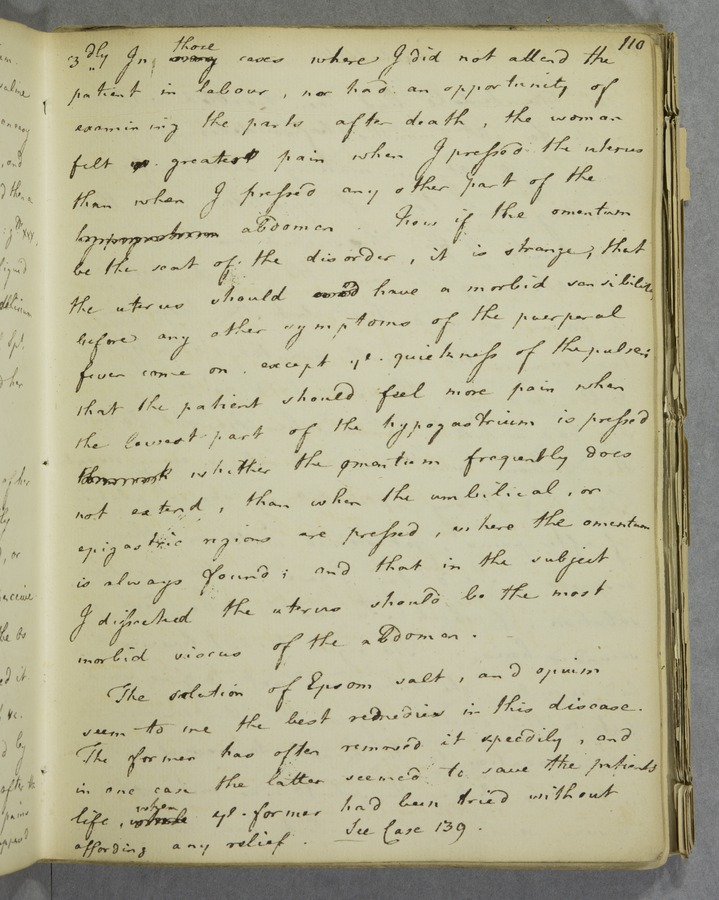 110
3dly In those cases where I did not attend the
patient in labour, nor had an opportunity of
examining the parts after death, the woman
felt greatest pain when I pressed the uterus
than when I pressed any other part of the
abdomen. Now if the omentum
be the seat of the disorder, it is strange, that
the uterus should have a morbid sensibility
before any other symptoms of the puerperal
fever come on except ye. quickness of the pulse:
that the patient should feel more pain when
the lowest part of the hypogastrium is pressed
whither the omentum frequently does
not extend, than when the umbilical, or
epigastric regions are pressed, where the omentum
is always found; and that in the subject
I dissected the uterus should be the most
morbid viscus of the abdomen.
The solution of Epsom salt, and opium
seem to me the best remedies in this disease.
The former has often removed it speedily, and
in one case the latter seemed to save the patients
life, when ye. former had been tried without
affording any relief. See Case 139.